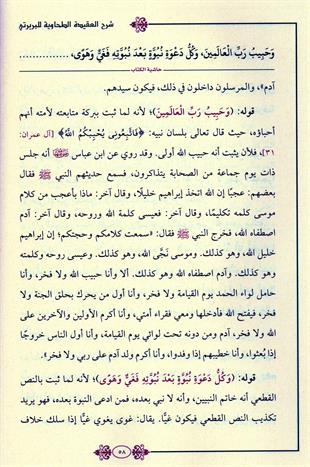 شرح العقيدة الطحاوية للبابرتي
وَحَبِيبُ رَبِّ الْعَالَمِينَ، وَكُلُّ دَعْوَةِ نُبُوَّةٍ بَعْدَ نُبُوَّتِهِ فَغَيٌّ وَهَوًى، ..............
حاشية الكتاب
آدم»، والمرسلون داخلون في ذلك، فيكون سيدهم.
قوله: (وَحَبِيبُ رَبِّ الْعَالَمِينَ)؛ لأنه لما ثبت ببركة متابعته لأمته أنهم
أحباؤه، حيث قال تعالى بلسان نبيه: ﴿فَاتَّبِعُونِي يُحْبِبْكُمُ اللَّهُ﴾ [آل عمران:
٣١]، فلأن يثبت أنه حبيب الله أولى. وقد روي عن ابن عباس ﷺ أنه جلس
ذات يوم جماعة من الصحابة يتذاكرون، فسمع حديثهم النبي ﷺ فقال
بعضهم: عجبًا إن الله اتخذ إبراهيم خليلًا، وقال آخر: ماذا بأعجب من كلام
موسى كلمه تكليمًا، وقال آخر: فعيسى كلمة الله وروحه، وقال آخر: آدم
اصطفاه الله، فخرج النبي ﷺ فقال: «سمعت كلامكم وحجتكم؛ إن إبراهيم
خليل الله، وهو كذلك. وموسى نجي الله، وهو كذلك. وعيسى روحه وكلمته
وهو كذلك. وآدم اصطفاه الله وهو كذلك. ألا وأنا حبيب الله ولا فخر، وأنا
حامل لواء الحمد يوم القيامة ولا فخر، وأنا أول من يحرك بحلق الجنة ولا
فخر، فيفتح الله فأدخلها ومعي فقراء أمتي، وأنا أكرم الأولين والآخرين على
الله ولا فخر، آدم ومن دونه تحت لوائي يوم القيامة، وأنا أول الناس خروجًا
إذا بُعثوا، وأنا خطيبهم إذا وفدوا، وأنا أكرم ولد آدم على ربي ولا فخر».
قوله: (وَكُلُّ دَعْوَةِ نُبُوَّةٍ بَعْدَ نُبُوَّتِهِ فَغَيٌّ وَهَوًى)؛ لأنه لما ثبت بالنص
القطعي أنه خاتم النبيين، وأنه لا نبي بعده، فمن ادعى النبوة بعده، فهو يريد
تكذيب النص القطعي فيكون غيًّا. يقال: غوى يغوي غيًّا إذا سلك خلاف
٥٨